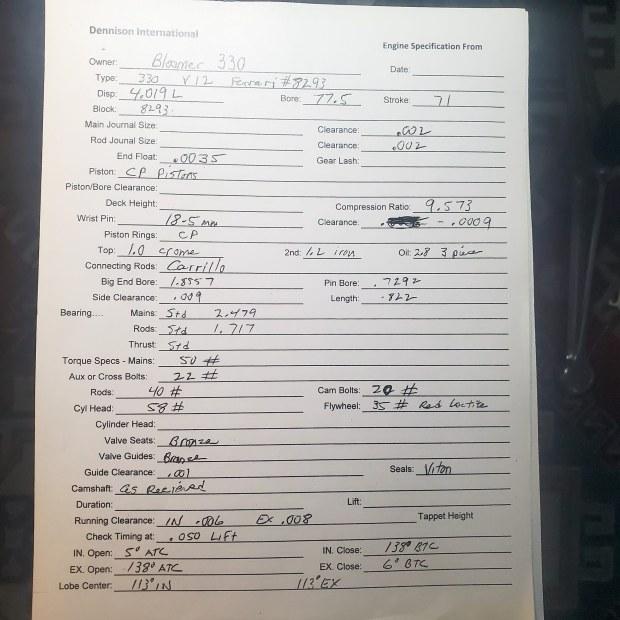 Dennison International
Engine Specification From
Owner: Bloomer 330 Date:
Type: 330 V12 Ferrari #8293
Disp: 4.019 L Bore: 77.5 Stroke: 71
Block: 8293
Main Journal Size: Clearance: .002
Rod Jounal Size: Clearance: .002
End Float: .0035 Gear Lash:
Piston: CP Pistons
Piston/Bore Clearance:
Deck Height: Compression Ratio: 9.573
Wrist Pin: 18-5 mm Clearance: - .0009
Piston Rings: CP
Top: 1.0 crome 2nd: 1.2 iron Oil: 2.8 3 piece
Connecting Rods: Carrillo
Big End Bore: 1.8557 Pin Bore: .7292
Side Clearance: .009 Length: .822
Bearing.... Mains: Std 2.479
Rods: Std 1.717
Thrust: Std
Torque Specs - Mains: 50 #
Aux or Cross Bolts: 22 #
Rods: 40 # Cam Bolts: 20 #
Cyl Head: 58 # Flywheel: 35 # Red Loctite
Cylinder Head:
Valve Seats: Bronze
Valve Guides: Bronze
Guide Clearance: .001 Seals: Viton
Camshaft: as Recieved
Duration: Lift:
Running Clearance: IN .006 EX .008 Tappet Height
Check Timing at: .050 Lift
IN. Open: 5° ATC IN. Close: 138° BTC
EX. Open: 138° ATC EX. Close: 6° BTC
Lobe Center: 113° IN 113° EX